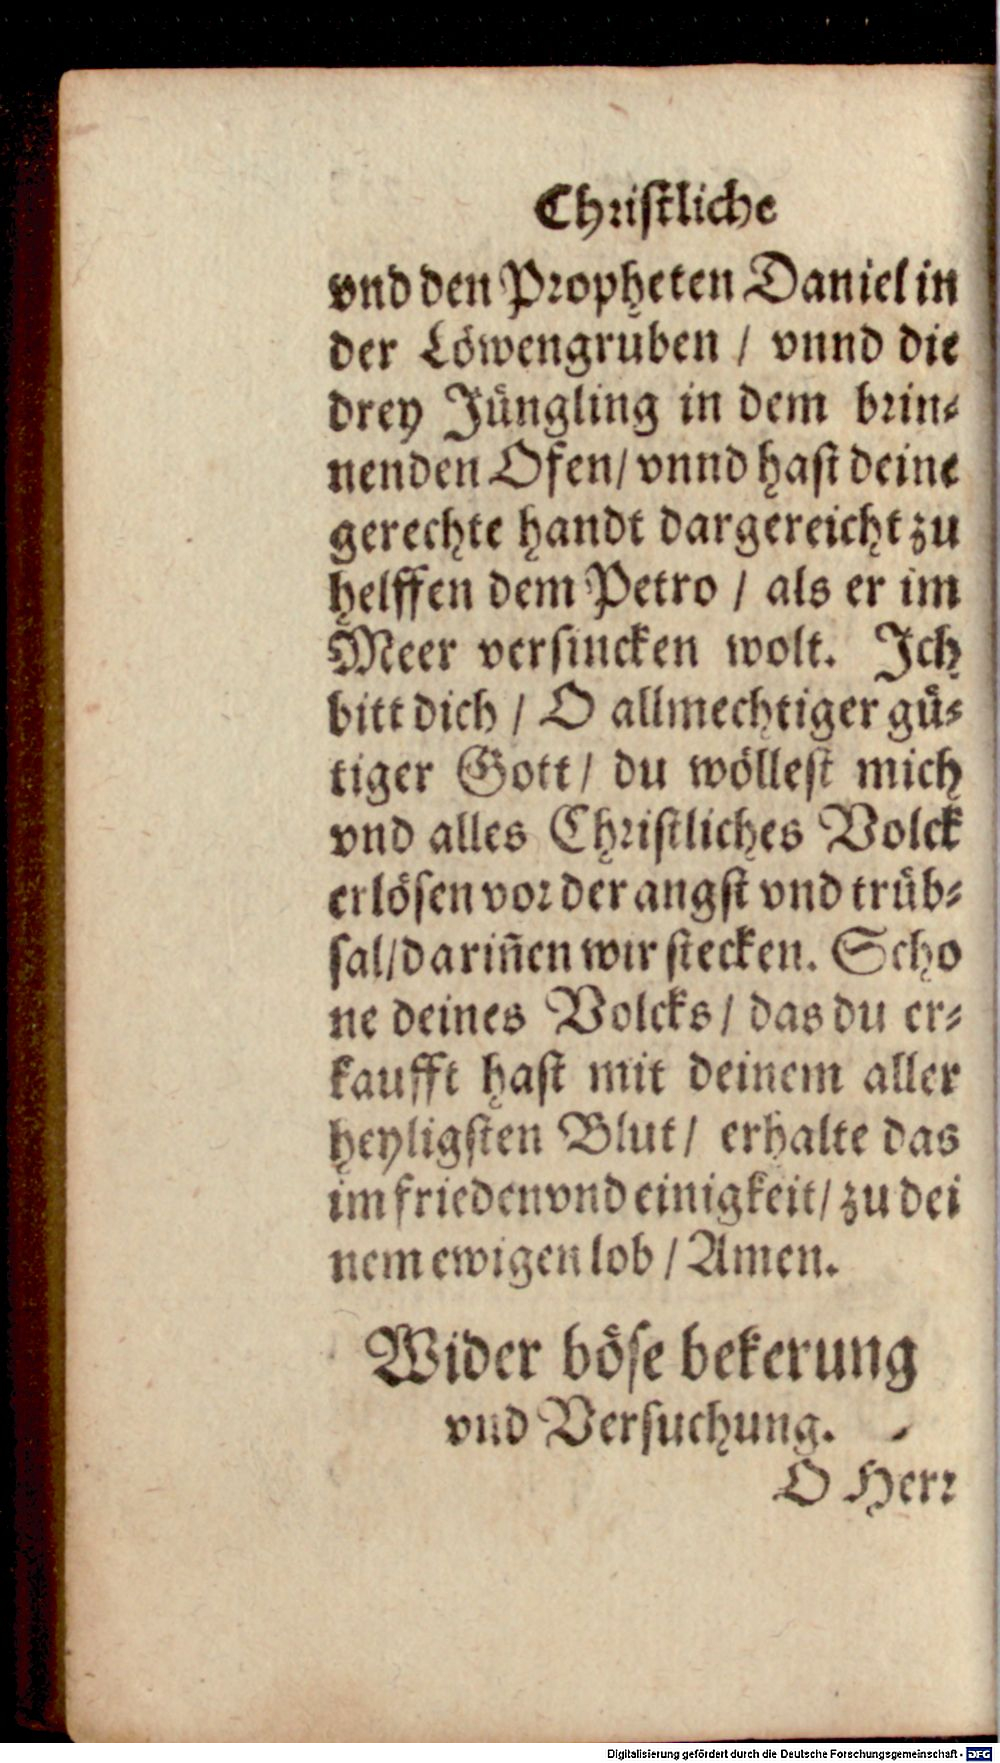 Christliche
vnd den Propheten Daniel in
der Löwengruben / vnnd die
drey Jüngling in dem brin⸗
nenden Ofen/ vnnd hast deine
gerechte handt dargereicht zu
helffen dem Petro / als er im
Meer versincken wolt. Ich
bitt dich / O allmechtiger gü⸗
tiger Gott/ du wöllest mich
vnd alles Christliches Volck
erlösen vor der angst vnd trüb⸗
sal/darin̄en wir stecken. Scho
ne deines Volcks / das du er⸗
kaufft hast mit deinem aller
heyligsten Blut/ erhalte das
im frieden vnd einigkeit/ zu dei
nem ewigen lob / Amen.
Wider böse bekerung
vnd Versuchung.
O Herr
Digitalisierung gefördert durch die Deutsche Forschungsgemeinschaft - DFG